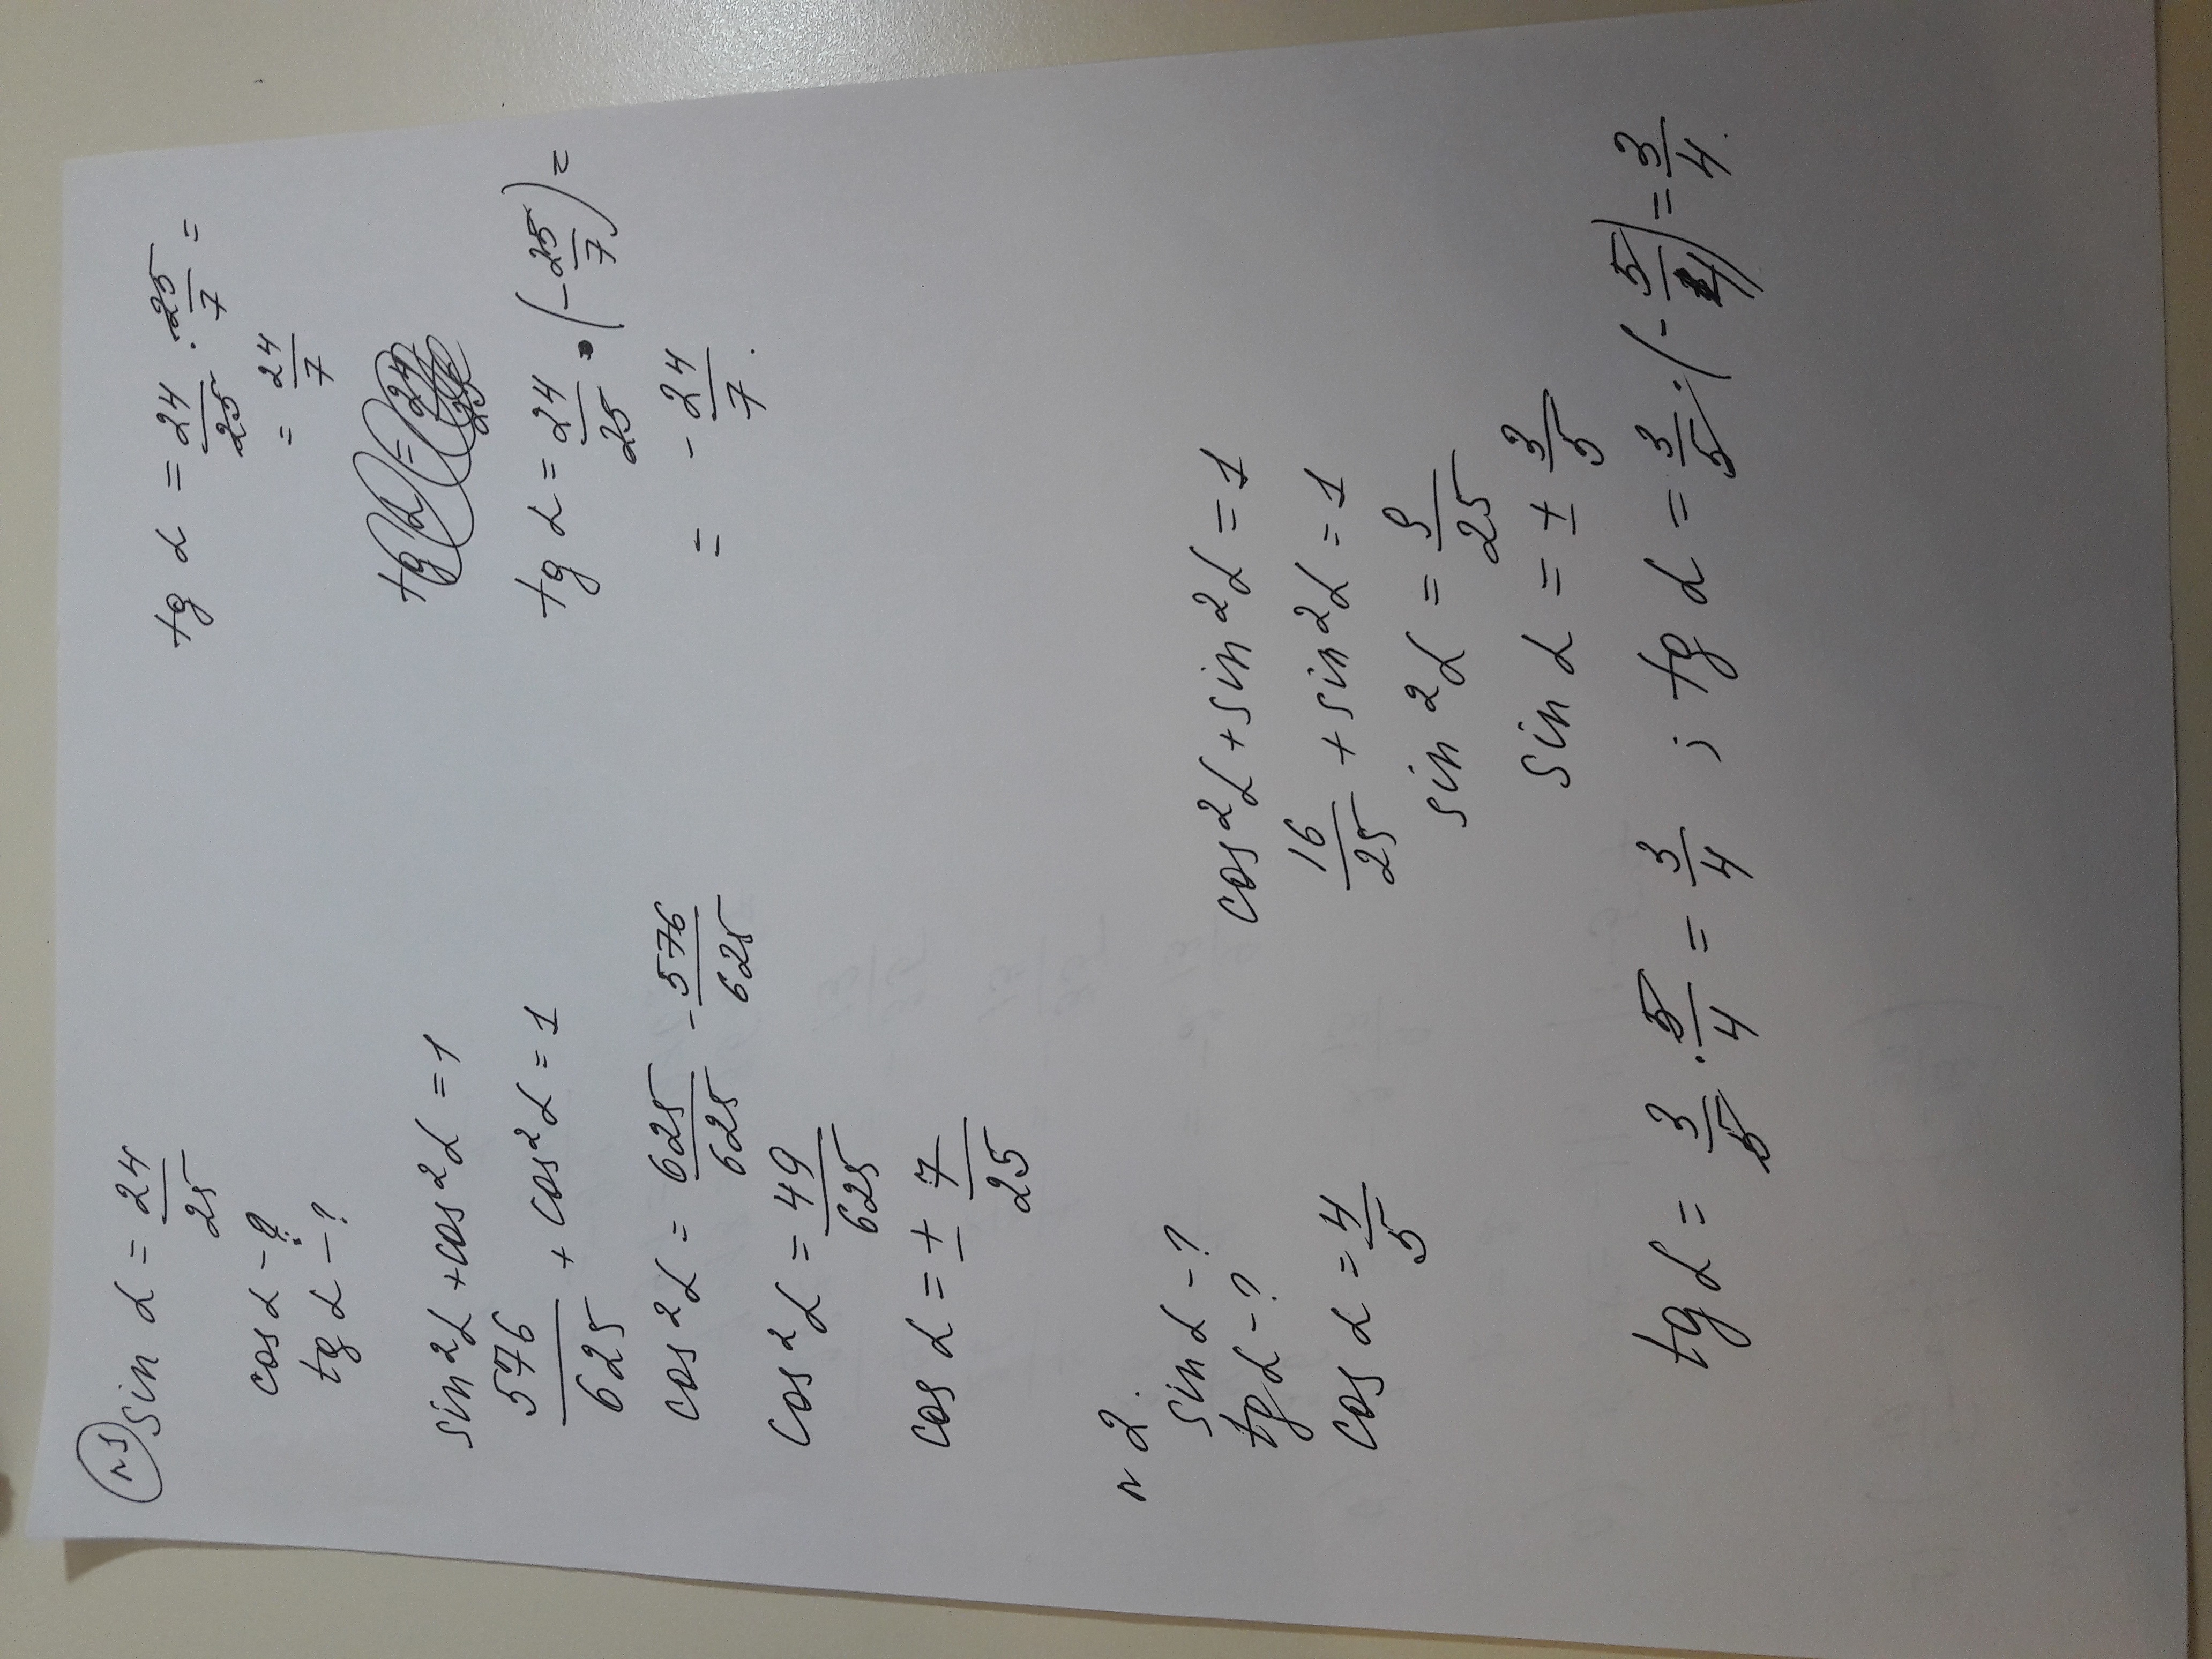 №1 sin α = 24/25
cos α - ?
tg α - ?
sin²α + cos²α = 1
576/625 + cos²α = 1
cos²α = 625/625 - 576/625
cos²α = 49/625
cos α = ± 7/25
tg α = 24/25 · 25/7 =
= 24/7
tg α = 24/25 · (-25/7) =
= - 24/7.
№2.
sin α - ?
tg α - ?
cos α = 4/5
cos²α + sin²α = 1
16/25 + sin²α = 1
sin²α = 9/25
sin α = ± 3/5
tg α = 3/5 · 5/4 = 3/4 ; tg α = 3/5 · (-5/4) = 3/4.